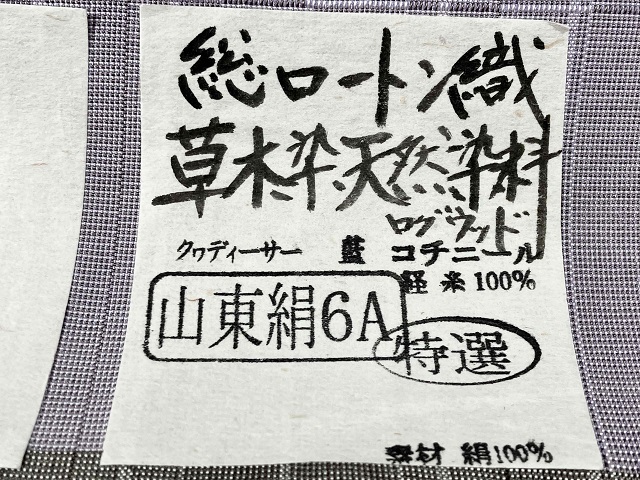 総ロートン織
草木染、天然染料
ログウッド
クヮディーサー 藍 コチニール
経糸100%
山東絹6A
特選
素材 絹100%